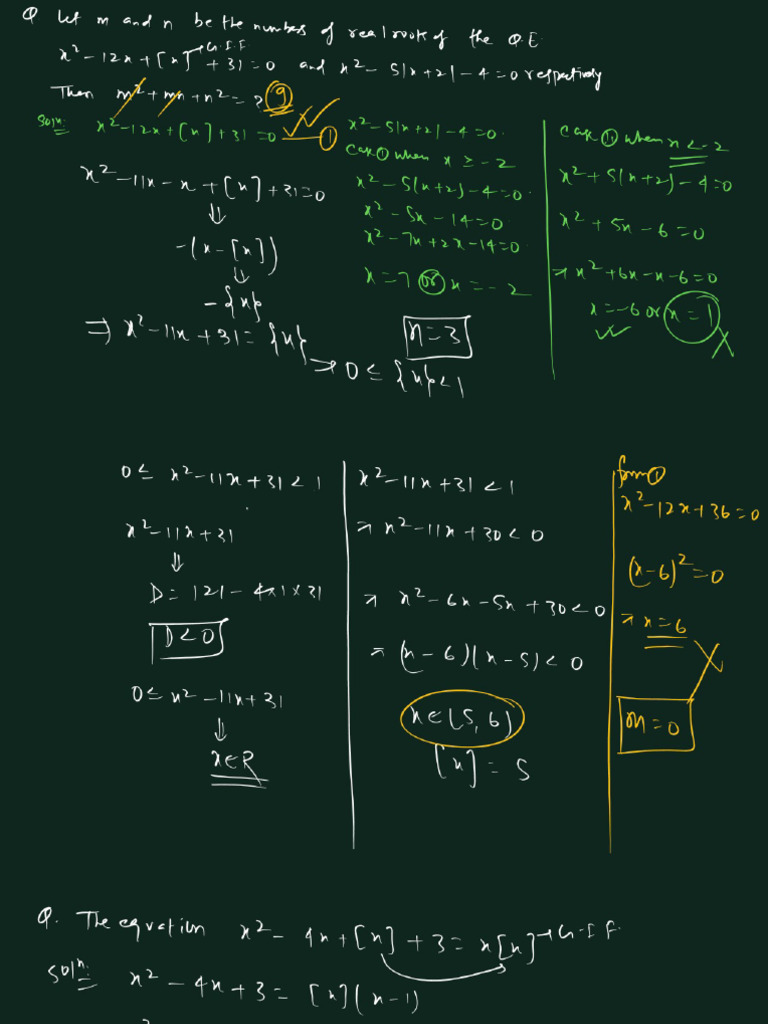 Q Let m and n be the numbers of real roots of the Q.E.
x² - 12x + [x] → G.I.F + 31 = 0 and x² - 5|x+2| - 4 = 0 respectively
Then m² + mn + n² = ? 9
Solⁿ: x² - 12x + [x] + 31 = 0 — ①
x² - 11x - x + [x] + 31 = 0
⇓
-(x - [x])
⇓
- {x}
⇒ x² - 11x + 31 = {x}
→ 0 ≤ {x} < 1
x² - 5|x+2| - 4 = 0
Case ① when x ≥ -2
x² - 5(x+2) - 4 = 0
x² - 5x - 14 = 0
x² - 7x + 2x - 14 = 0
x = 7 or x = -2
n = 3
Case ⑪ when x < -2
x² + 5(x+2) - 4 = 0
x² + 5x - 6 = 0
⇒ x² + 6x - x - 6 = 0
x = -6 or x = 1
0 ≤ x² - 11x + 31 < 1
x² - 11x + 31
⇓
D = 121 - 4×1×31
D < 0
0 ≤ x² - 11x + 31
⇓
x ∈ R
x² - 11x + 31 < 1
⇒ x² - 11x + 30 < 0
⇒ x² - 6x - 5x + 30 < 0
⇒ (x - 6)(x - 5) < 0
x ∈ (5, 6)
[x] = 5
from ①
x² - 12x + 36 = 0
(x - 6)² = 0
⇒ x = 6
m = 0
Q. The equation x² - 4x + [x] + 3 = x[x] → G.I.F.
Solⁿ: x² - 4x + 3 = [x](x - 1)